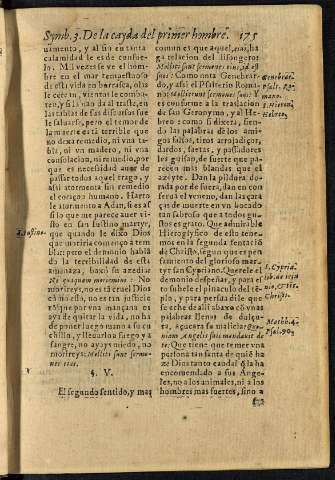 Symb. 3. De la cayda del primer hombre. 175
uamento, y al fin en tanta
calamidad le es de consue-
lo. Mil vezes se ve el hom-
bre en el mar tempestuoso
de esta vida en borrasca, o la
le cerca, vientos le comba-
ten, y si la no da al traste, en
las tablas de sus discursos sue
le saluarse, pero el temor de
la muerte es tã terrible que
no dexa remedio, ni vna ta-
bla, ni vn madero, ni vna
consolacion, ni remedio, por
que es necessidad auer de
passar todos aquel trago, y
assi atormenta sin remedio
el coraçon humano. Harto
le atormento a Adan, si es as
si lo que me parece auer vis-
to en san Iustino martyr,
que quando le dixo Dios
que moriria començo a tem
blar: pero el demonio hablã
de la terribilidad de esta
amenaza, baxò su azedia:
No quaquam moriemini: No
morireys, no es tã cruel Dios
como esto, no es tan justicie
ro, que por vna mançana os
aya de quitar la vida, no ha
de poner luego mano a su cu
chillo, y lleuarlo a fuego y a
sangre, no ayays miedo, no
morireys: Mollits sunt sermo-
nes eius.
§. V.
El segundo sentido, y mas
comun es que aquel, eius, ha
ga relacion del lisongero:
Mollits sunt sermones eius, id est
suos: Como nota Genebrar-
do, y assi el Psalterio Roma-
no: Mollierunt sermones suos: Y
es conforme a la traslacion
de san Geronymo, y al He-
breo: como si dixera, siendo
las palabras de los ami-
gos falsos, tiros arrojadiços,
dardos, saetas, y passadores
les guisan, de suerte que pa-
recen mas blandas que el
azeyte. Dan la pildora do-
rada por de fuera, dan en con
serua el veneno, dan las çara
ças de muerte en vn bocado
tan sabroso que a todos gus-
tos es grato. Que admirable
Hieroglyfico de esto tene-
mos en la segunda tentaciõ
de Christo, segun que es pen
samiento del glorioso mar-
tyr san Cypriano. Querele el
demonio despeñar, y para el
lo subele en el pinaculo del tẽ
plo, y para persuadirle que
se eche de alli abaxo cõ vnas
palabras llenas de dulçu-
ra, açucara su malicia: Quo-
niam Angelis suis mandauit de
te: Que tiene que temer vna
persona tan santa de quiẽ ha
ze Dios tanto caudal q̃ la ha
encomendado a sus Ange-
les, no a los animales, ni a los
hombres mas fuertes, sino a
S. Iustino.
Genebrar.
Psalt. Ro-
mano.
S. Hieron.
Hebreo.
S. Cypria.
Matth. 4.
Psal. 90.